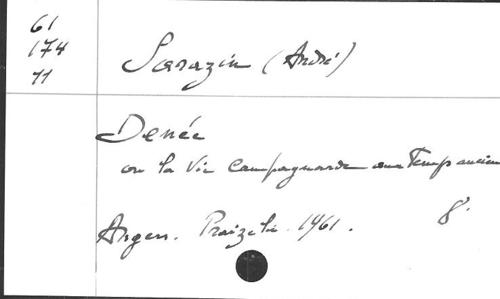 61
174
71
Sarazin (André)
Denée
ou la Vie Campagnarde aux Temps anciens
Angers. 1961.
8°.